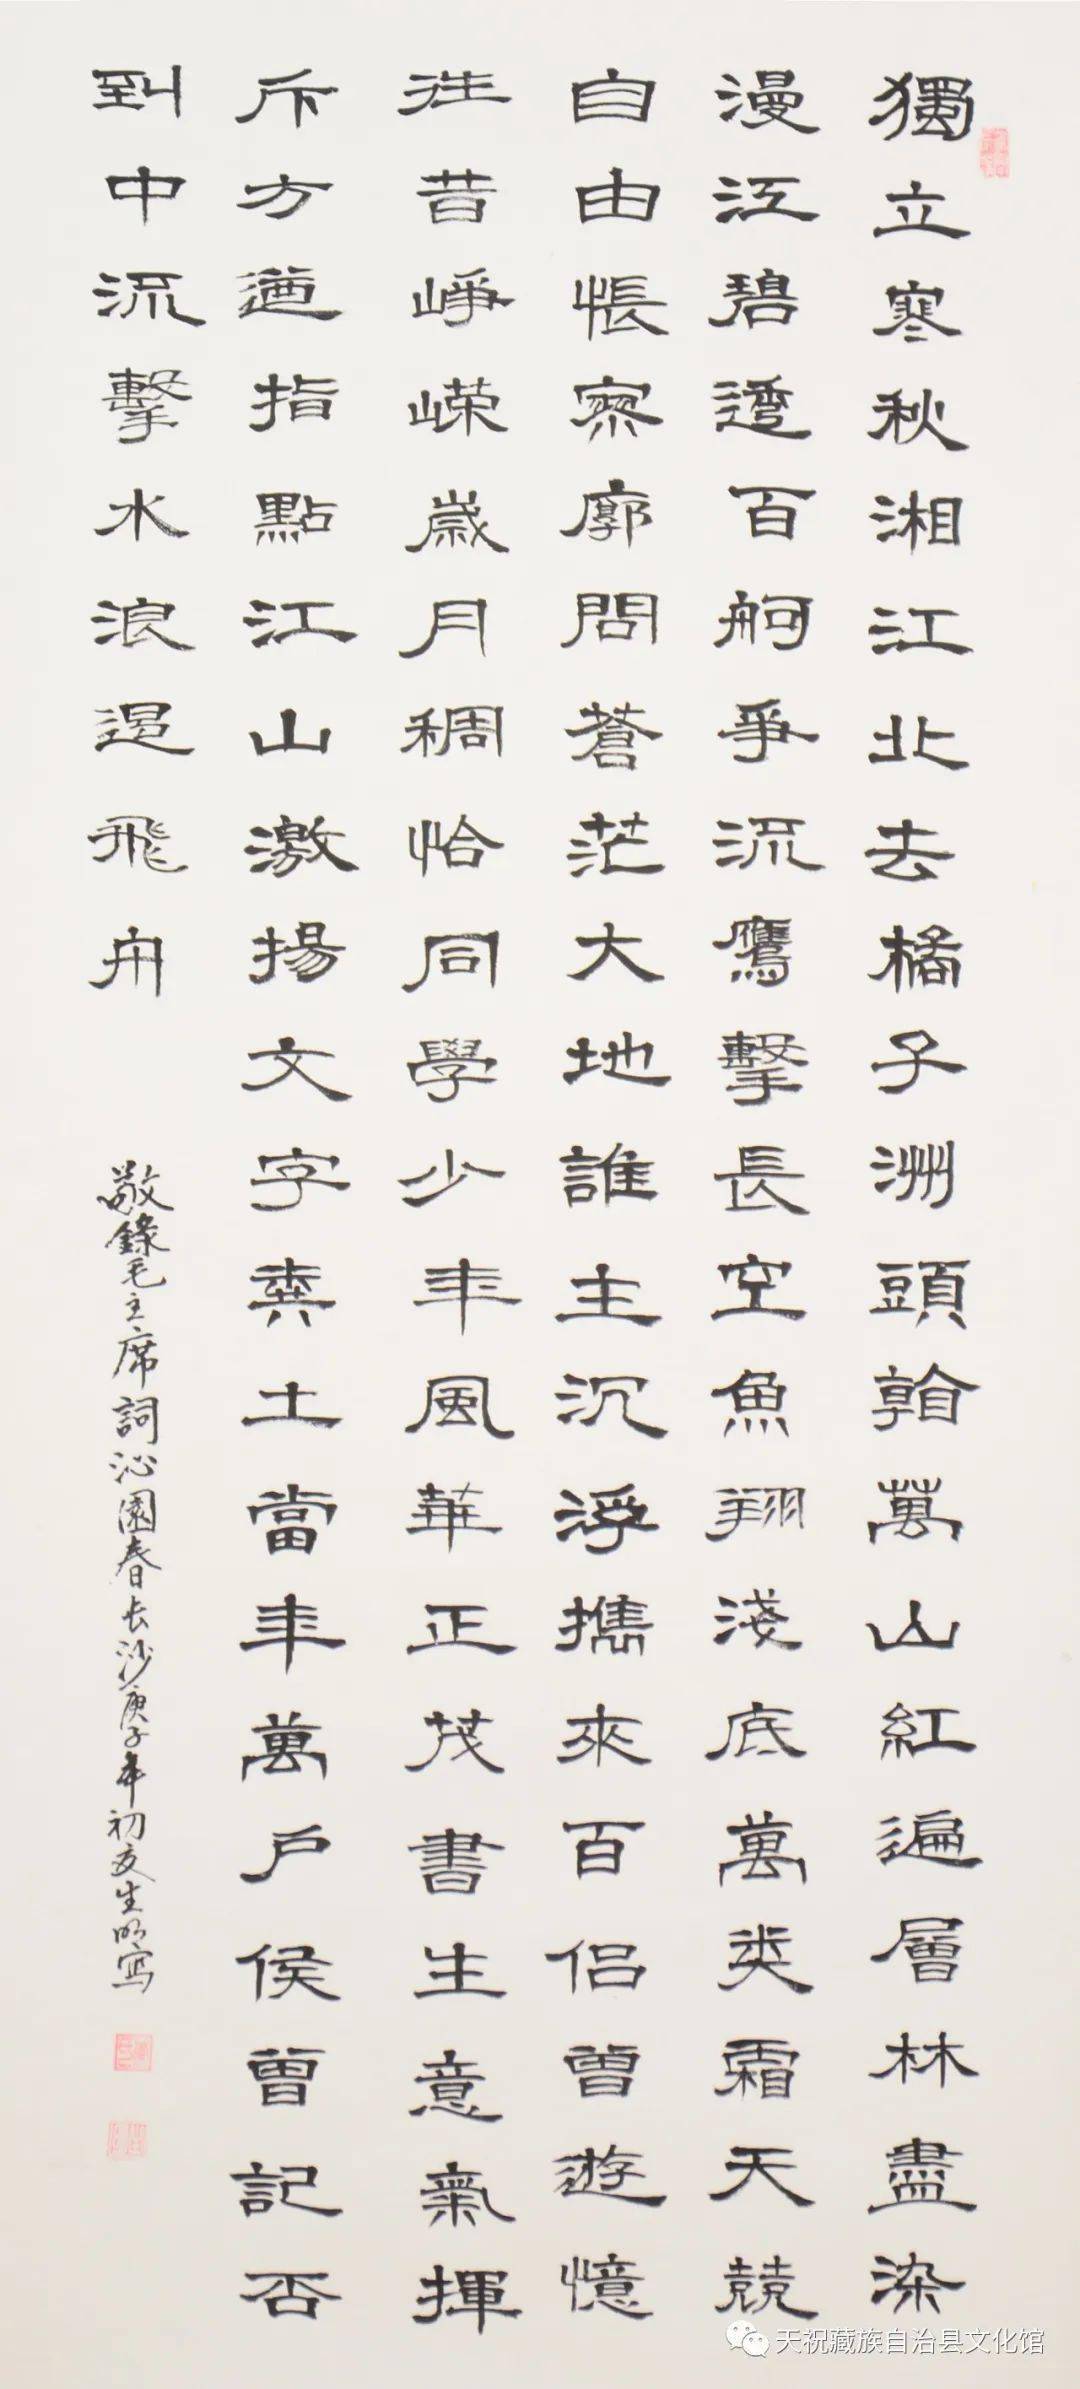 獨立寒秋湘江北去橘子洲頭看萬山紅遍層林盡染
漫江碧透百舸爭流鷹擊長空魚翔淺底萬类霜天競
自由悵寥廓問蒼茫大地誰主沉浮攜來百侣曾遊憶
往昔崢嶸歲月稠恰同學少年風華正茂書生意氣揮
斥方遒指點江山激揚文字糞土當年萬户侯曾記否
到中流擊水浪遏飛舟
敬錄毛主席詞沁園春长沙庚子年初夏生明寫
天祝藏族自治县文化馆